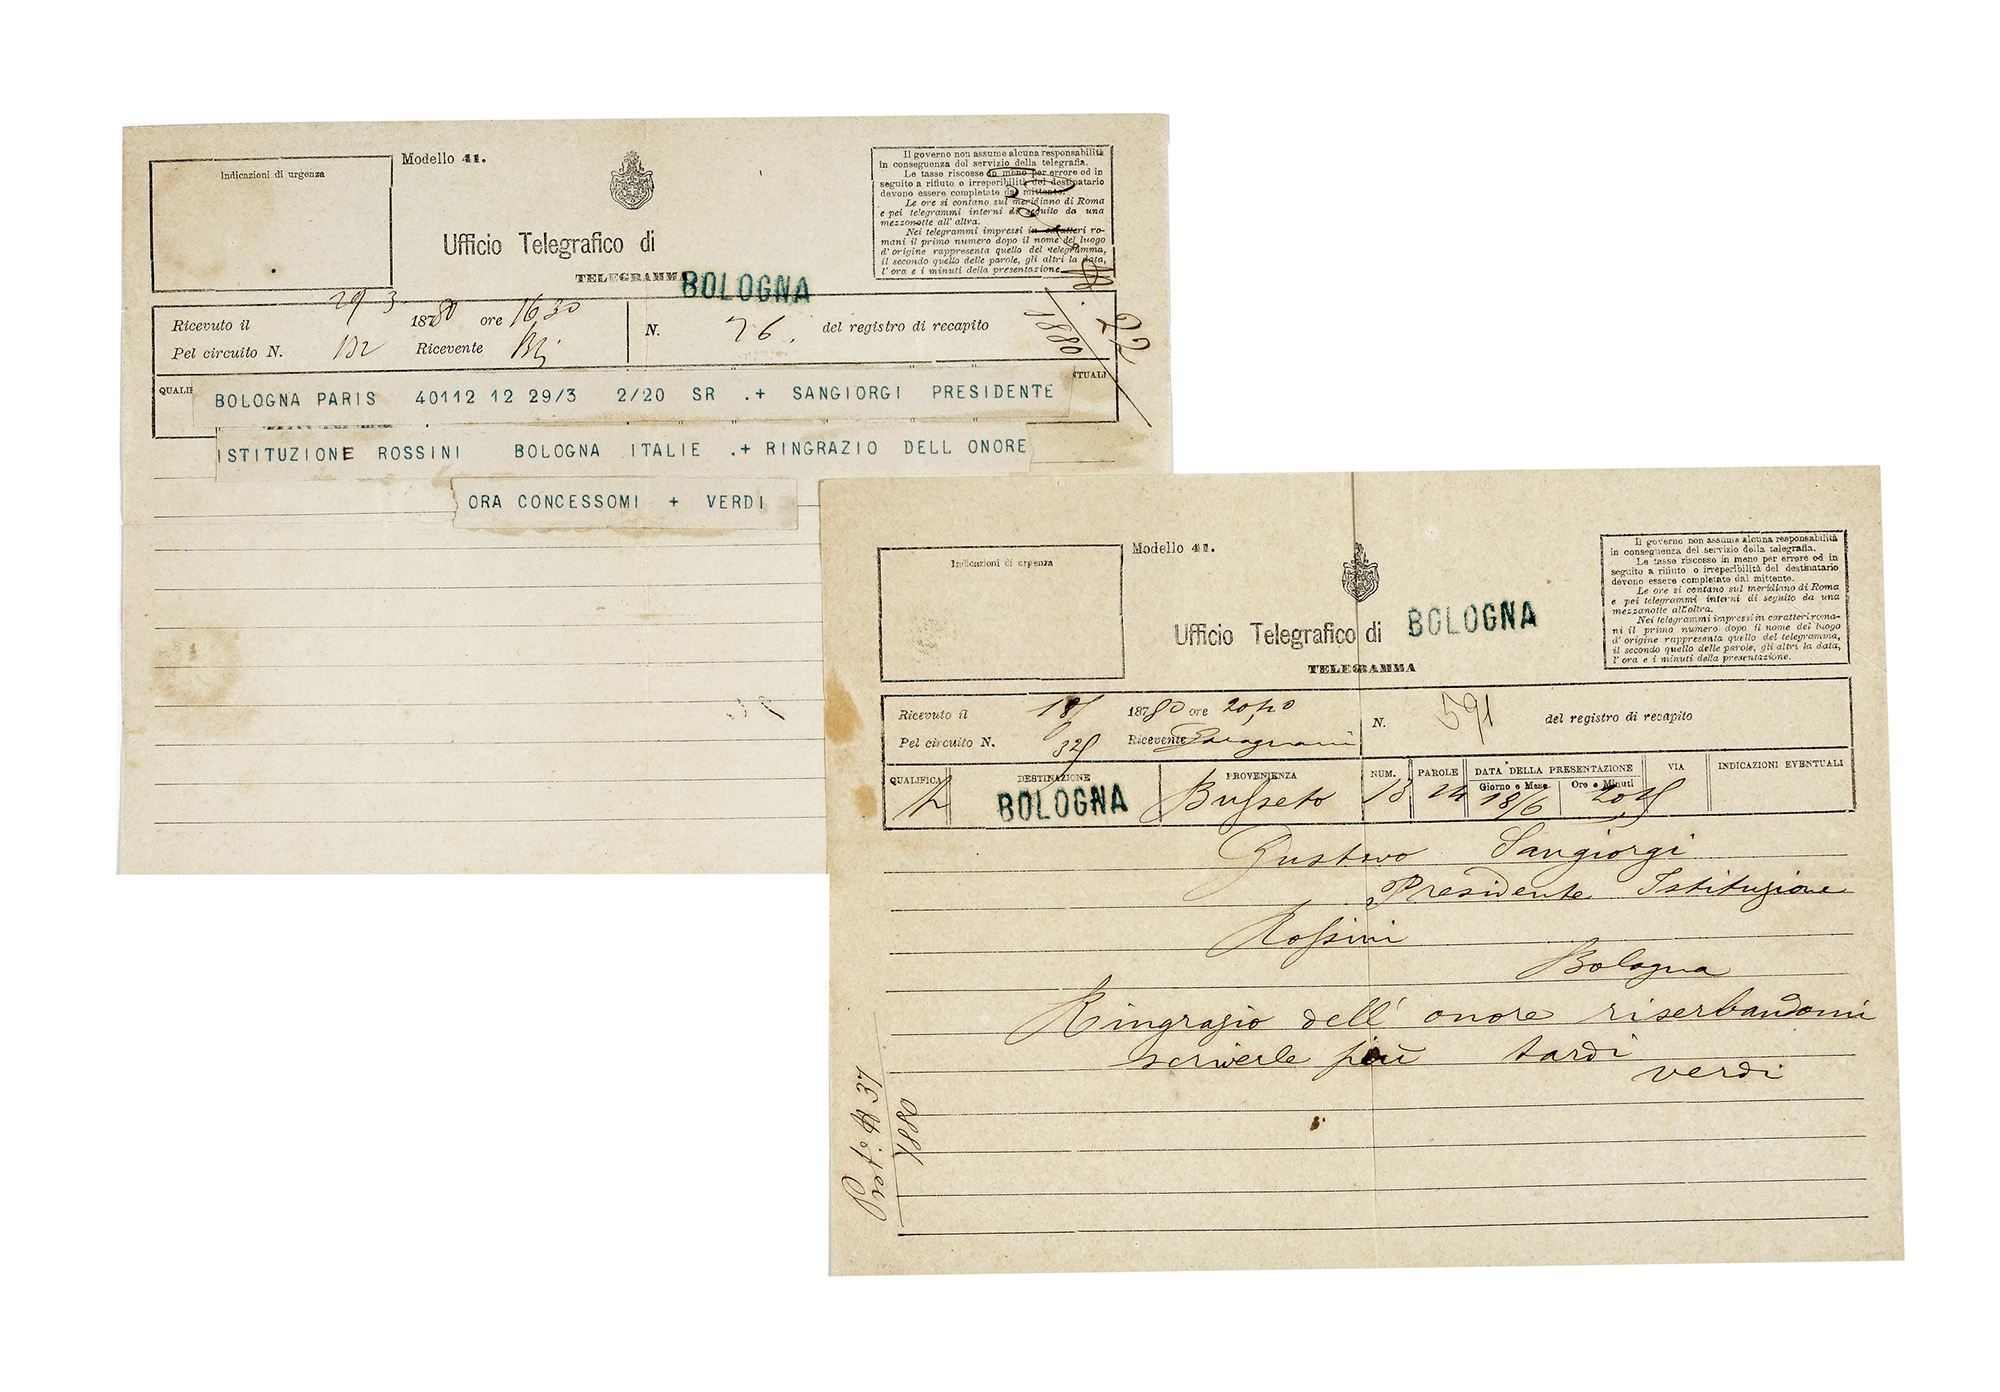 Indicazioni di urgenza
Modello 41.
Ufficio Telegrafico di
TELEGRAMMA
BOLOGNA
Il governo non assume alcuna responsabilità
in conseguenza del servizio della telegrafia.
Le tasse riscosse in meno per errore od in
seguito a rifiuto o irreperibilità del destinatario
devono essere completate dal mittente.
Le ore si contano sul meridiano di Roma
e pei telegrammi interni di seguito da una
mezzonotte all' altra.
Nei telegrammi impressi in caratteri ro-
mani il primo numero dopo il nome del luogo
d' origine rappresenta quello del telegramma,
il secondo quello delle parole, gli altri la data,
l' ora e i minuti della presentazione.
22
1880
Ricevuto il 29 3 1880 ore 16 30
Pel circuito N. Ricevente
N. 76. del registro di recapito
QUALIF
TUALI
BOLOGNA PARIS 40112 12 29/3 2/20 SR .+ SANGIORGI PRESIDENTE
ISTITUZIONE ROSSINI BOLOGNA ITALIE .+ RINGRAZIO DELL ONORE
ORA CONCESSOMI + VERDI
Indicazioni di urgenza
Modello 41.
Ufficio Telegrafico di BOLOGNA
TELEGRAMMA
Il governo non assume alcuna responsabilità
in conseguenza del servizio della telegrafia.
Le tasse riscosse in meno per errore od in
seguito a rifiuto o irreperibilità del destinatario
devono essere completate dal mittente.
Le ore si contano sul meridiano di Roma
e pei telegrammi interni di seguito da una
mezzanotte all'altra.
Nei telegrammi impressi in caratteri roma-
ni il primo numero dopo il nome del luogo
d' origine rappresenta quello del telegramma,
il secondo quello delle parole, gli altri la data,
l' ora e i minuti della presentazione.
Ricevuto il 18/ 1880 ore 20,40
Pel circuito N. 325 Ricevente
N. 591 del registro di recapito
QUALIFICA DESTINAZIONE PROVENIENZA NUM. PAROLE DATA DELLA PRESENTAZIONE VIA INDICAZIONI EVENTUALI
Giorno e Mese Ore e Minuti
BOLOGNA Busseto 13 14 18/6 20 15
Gustavo Sangiorgi
Presidente Istituzione
Rossini
Bologna
Ringrazio dell' onore riserbandomi
scriverle più tardi
verdi
Prot. N 37
1880